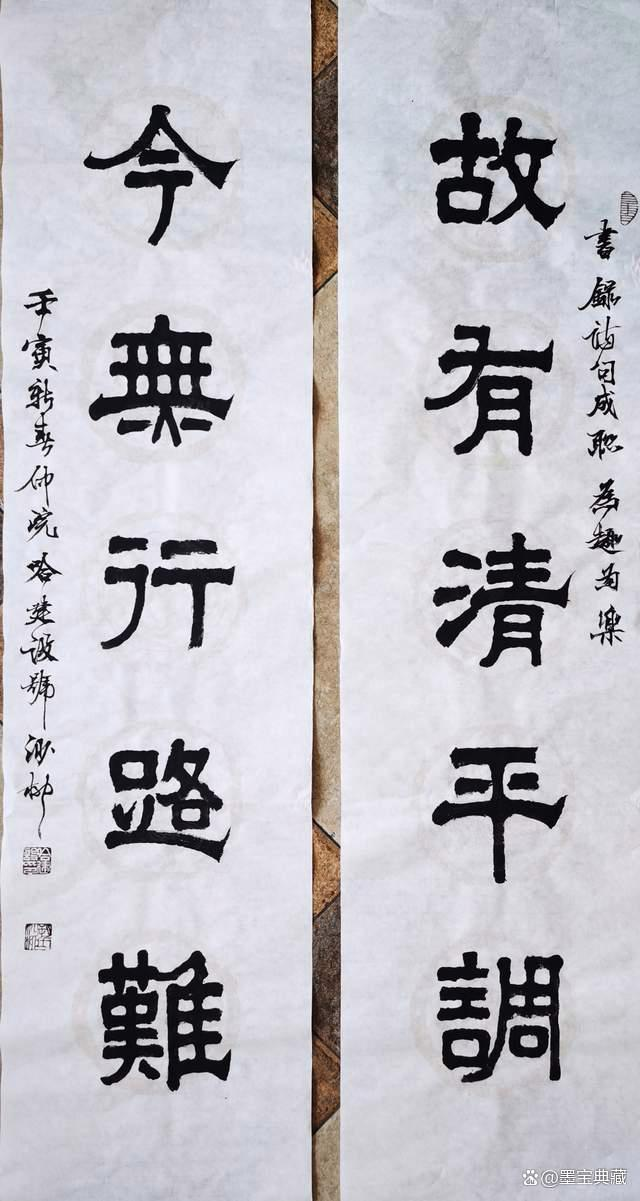 故有清平調
書錄詩句成聯為趣為樂
今無行路難
壬寅新春仲浣哈建設號
@墨宝典藏